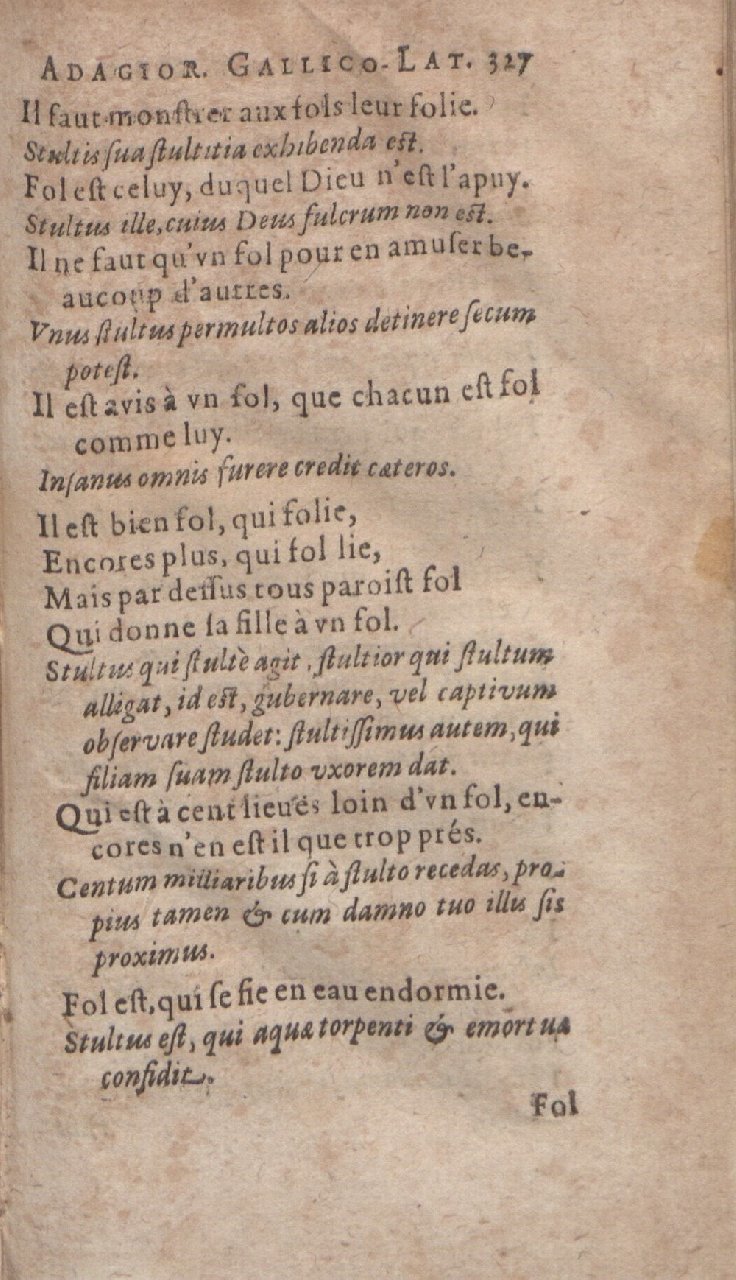 ADAGIOR. GALLICO-LAT. 327
Il faut monſtrer aux fols leur folie.
Stultis ſua ſtultitia exhibenda eſt.
Fol eſt celuy, duquel Dieu n'eſt l'apuy.
Stultus ille, cuius Deus fulcrum non eſt.
Il ne faut qu'vn fol pour en amuſer be-
aucoup d'autres.
Vnus ſtultus permultos alios detinere ſecum
poteſt.
Il eſt avis à vn fol, que chacun eſt fol
comme luy.
Inſanus omnis furere credit cæteros.
Il eſt bien fol, qui folie,
Encores plus, qui fol lie,
Mais par deſſus tous paroiſt fol
Qui donne ſa fille à vn fol.
Stultus qui ſtultè agit, ſtultior qui ſtultum
alligat, id eſt, gubernare, vel captivum
obſervare ſtudet: ſtultiſſimus autem, qui
filiam ſuam ſtulto vxorem dat.
Qui eſt à cent lieuës loin d'vn fol, en-
cores n'en eſt il que trop prés.
Centum milliaribus ſi à ſtulto recedas, pro-
pius tamen & cum damno tuo illus ſis
proximus.
Fol eſt, qui ſe fie en eau endormie.
Stultus eſt, qui aquæ torpenti & emortuæ
confidit.
Fol